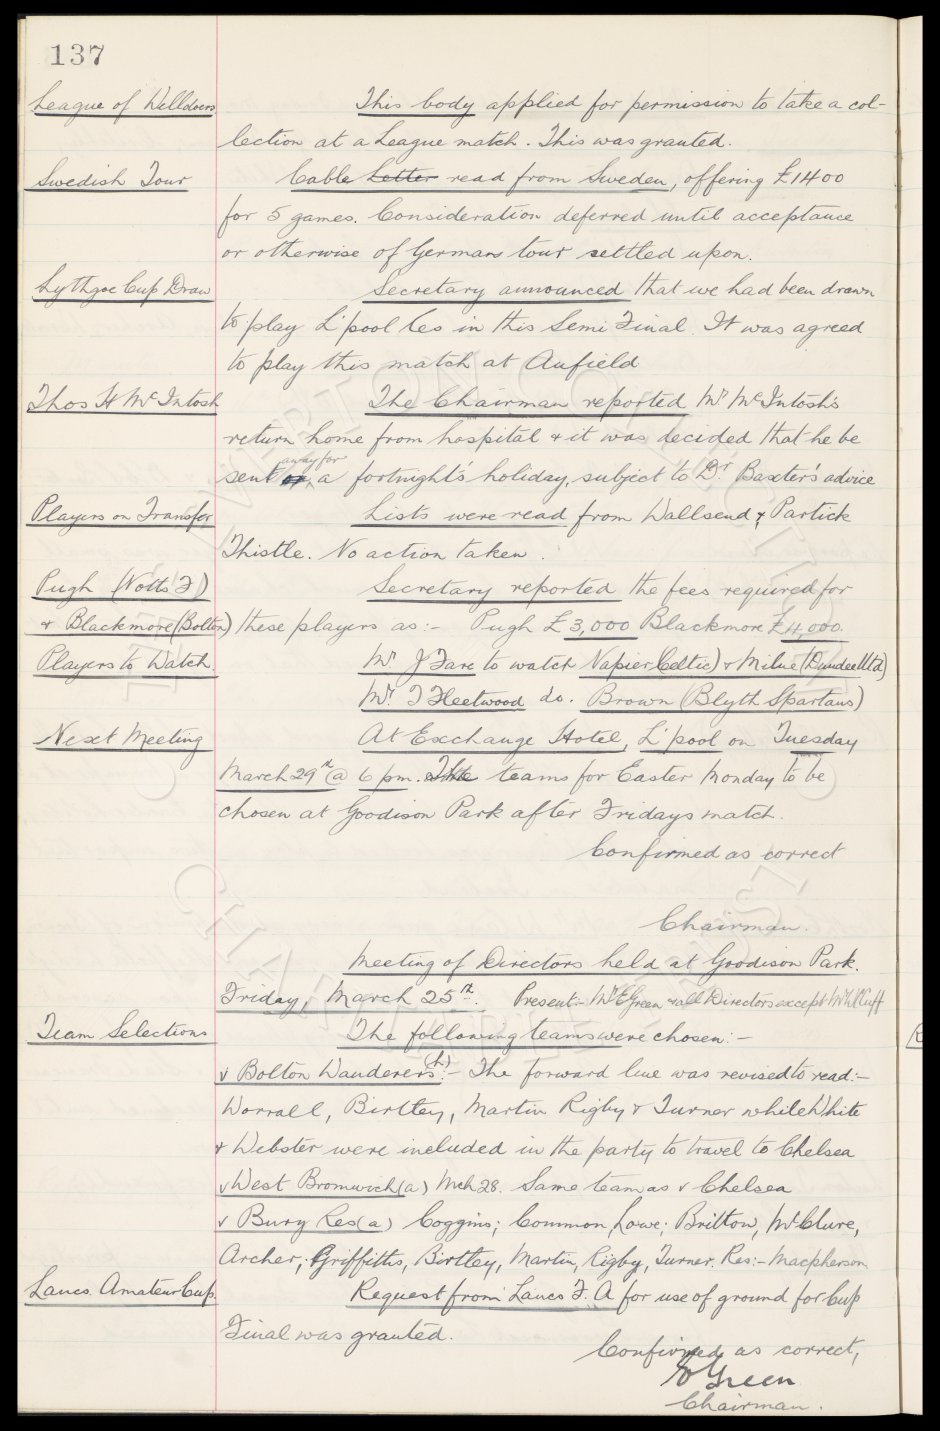 137
League of Welldoers This body applied for permission to take a col-
lection at a League match. This was granted.
Swedish Tour Cable Letter read from Sweden, offering £1400
for 5 games. Consideration deferred until acceptance
or otherwise of German tour settled upon.
Lythgoe Cup Draw Secretary announced that we had been drawn
to play L'pool Res in this Semi Final. It was agreed
to play this match at Anfield
Thos H McIntosh The Chairman reported Mr McIntosh's
return home from hospital & it was decided that he be
away for
sent on a fortnight's holiday, subject to Dr Baxter's advice
Players on Transfer Lists were read from Wallsend & Partick
Thistle. No action taken.
Pugh (Notts F) Secretary reported the fees required for
& Blackmore (Bolton) these players as:- Pugh £3,000 Blackmore £4,000.
Players to Watch. Mr J Fare to watch Napier (Celtic) & Milne (Dundee Utd)
Mr T Fleetwood do. Brown (Blyth Spartans)
Next Meeting At Exchange Hotel, L'pool on Tuesday
March 29th @ 6 pm. The teams for Easter Monday to be
chosen at Goodison Park after Fridays match.
Confirmed as correct
Chairman.
Meeting of Directors held at Goodison Park.
Friday, March 25th. Present:- Mr E Green & all Directors except Mr W C Cuff
Team Selections The following teams were chosen:-
v Bolton Wanderers (h):- The forward line was revised to read:-
Worrall, Birtley, Martin Rigby & Turner while White
& Webster were included in the party to travel to Chelsea
v West Bromwich (a) Mch 28. Same team as v Chelsea
v Bury Res (a) Coggins; Common, Lowe; Britton, McClure,
Archer; Griffiths, Birtley, Martin, Rigby, Turner. Res:- Macpherson
Lancs. Amateur Cup. Request from Lancs F. A for use of ground for Cup
Final was granted.
Confirmed as correct,
E Green
Chairman.